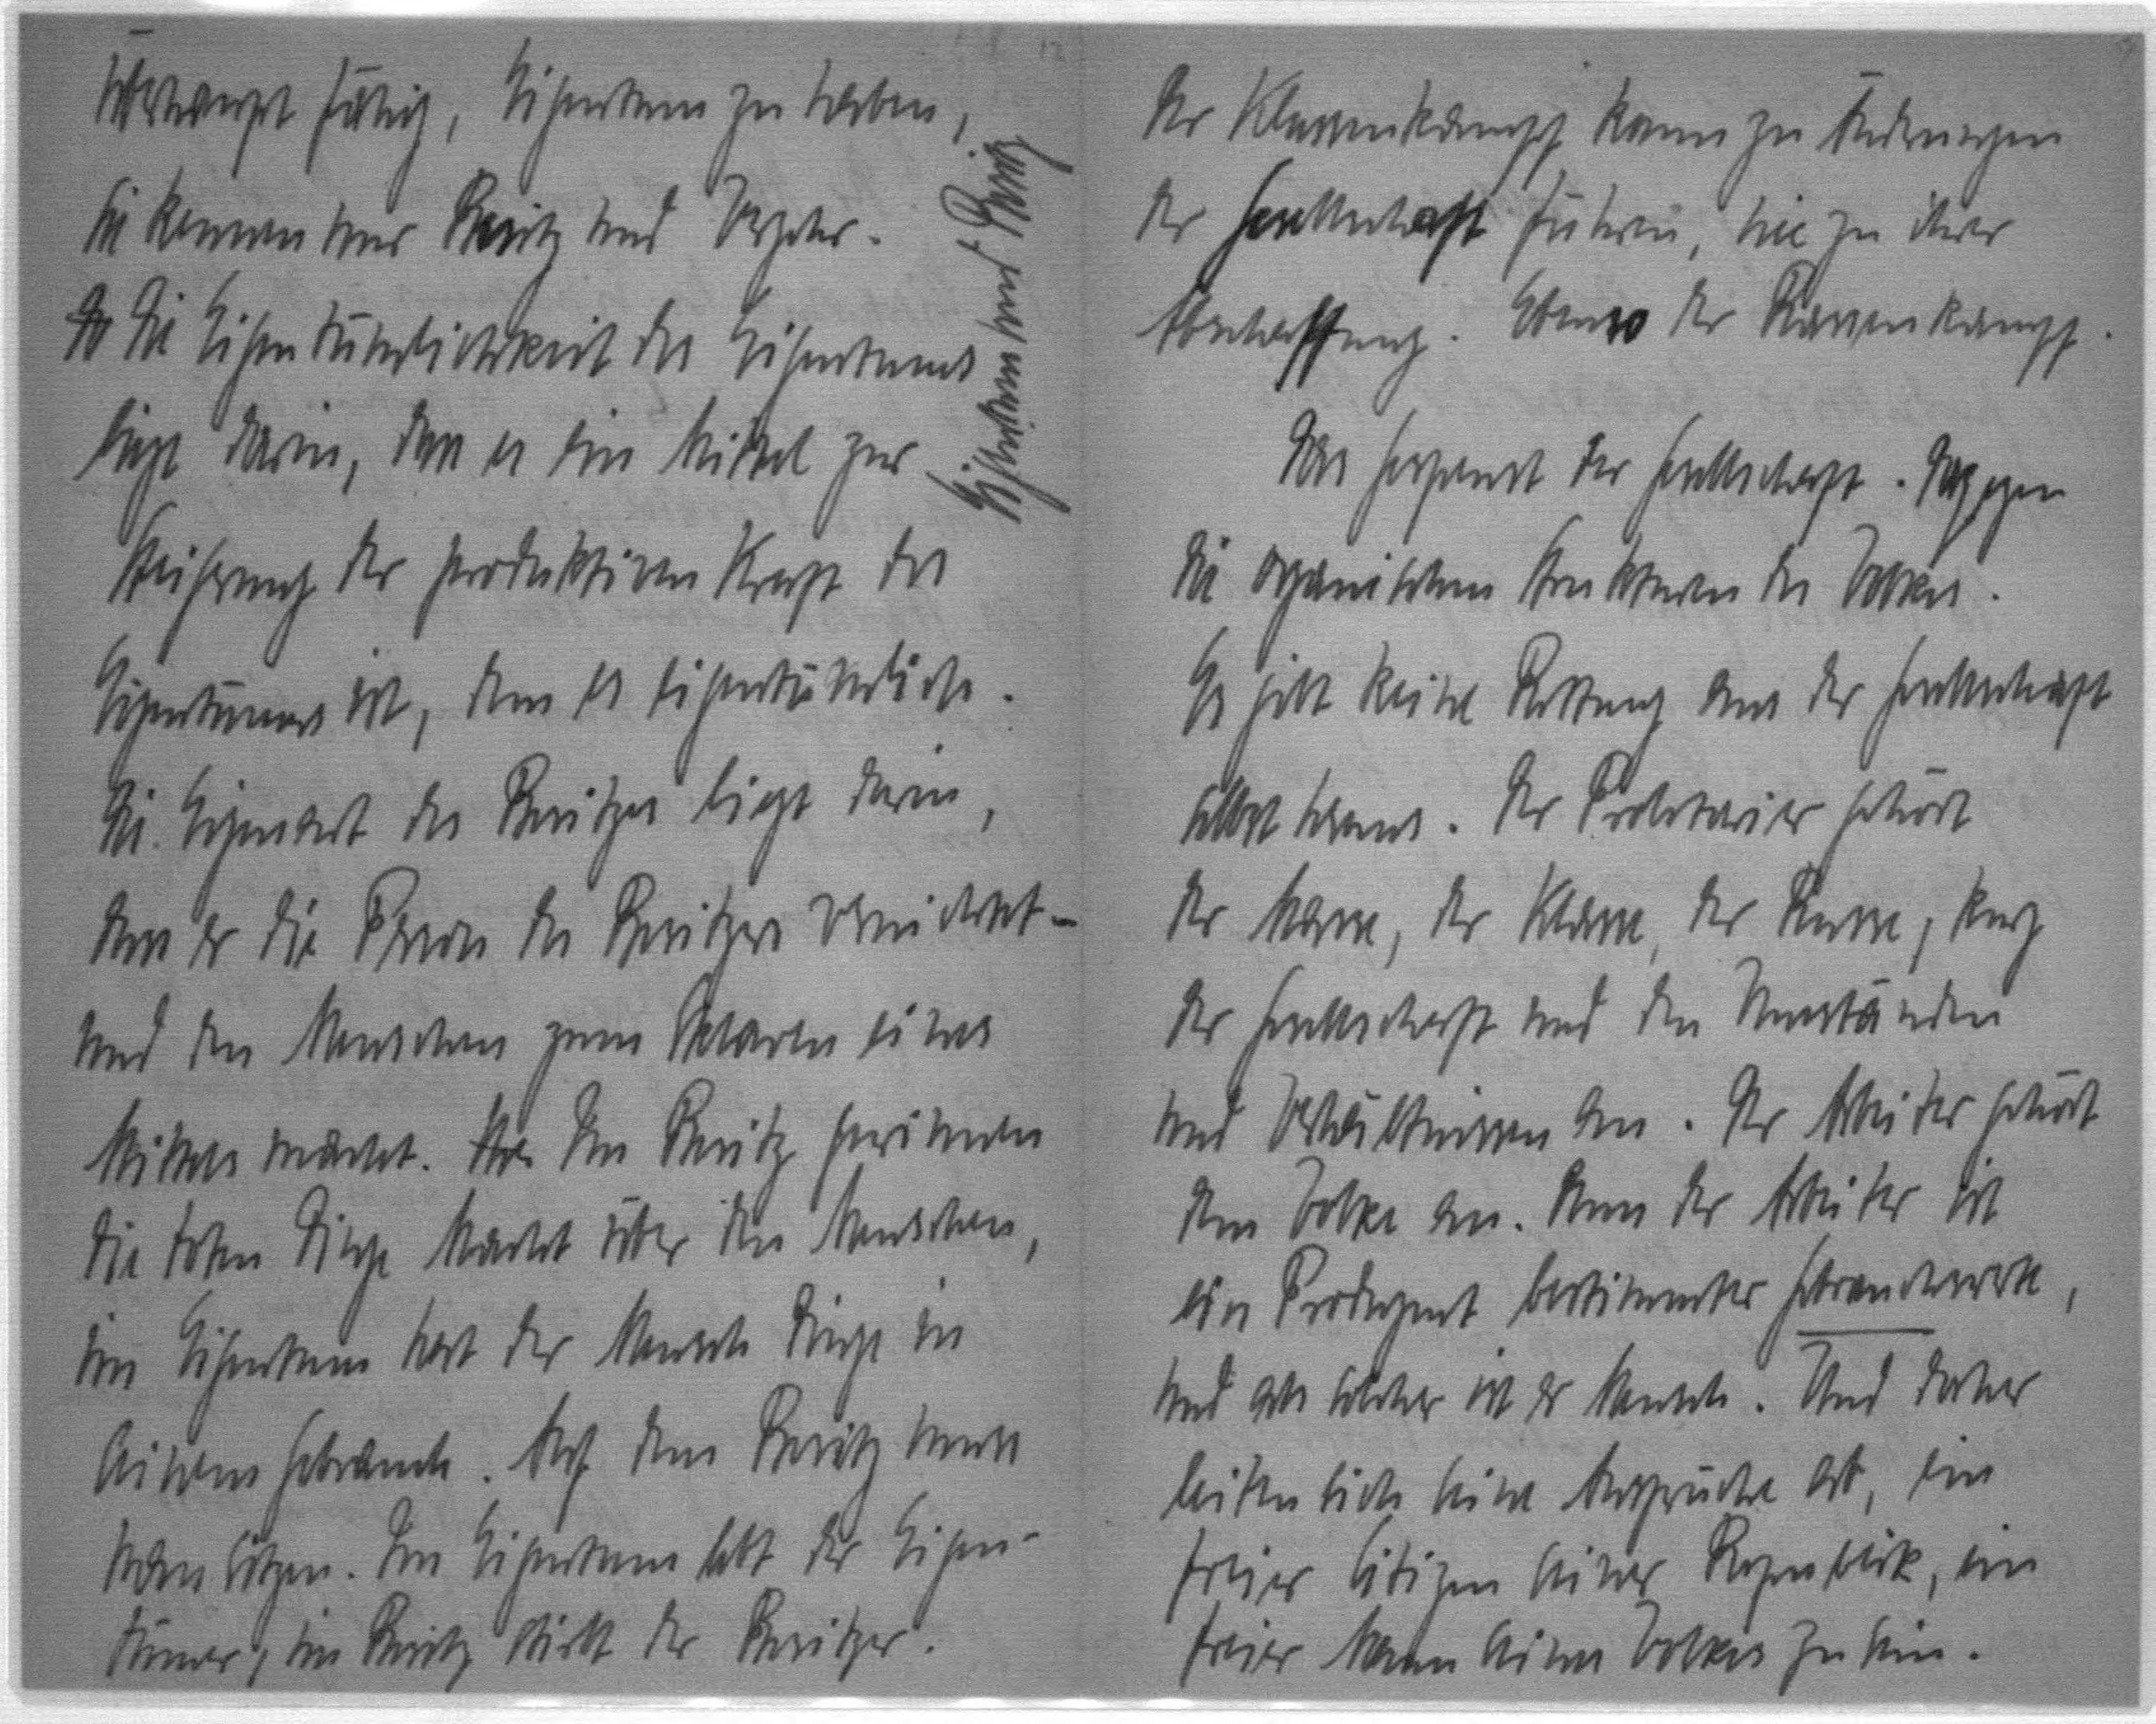 überhaupt fähig, Eigentum zu haben,
sie kennen nur Besitz und Verzehr.
Die Eigentümlichkeit des Eigentums
liegt darin, dass es ein Mittel zur
Steigerung der produktiven Kraft des
Eigentümers ist, dem es eigentümlich.
Die Eigenart des Besitzes liegt darin,
dass er die Person des Besitzers vernichtet –
und den Menschen zum Sklaven eines
Mittels macht. Im Besitz gewinnen
die toten Dinge Macht über den Menschen,
im Eigentum hat der Mensch Dinge in
seinem Gebrauch. Auf dem Besitz muss
man sitzen. Im Eigentum lebt der Eigen-
tümer, im Besitz stirbt der Besitzer.
Eigentum und Besitz
Der Klassenkampf kann zu Änderungen
der Gesellschaft führen, nie zu ihrer
Abschaffung. Ebenso der Rassenkampf.
Das Gespenst der Gesellschaft. Dagegen
die organischen Strukturen des Volkes.
Es gibt keine Rettung aus der Gesellschaft
selbst heraus. Der Proletarier gehört
der Masse, der Klasse, der Rasse, kurz
der Gesellschaft und den Umständen
und Verhältnissen an. Der Arbeiter gehört
dem Volke an. Denn der Arbeiter ist
ein Produzent bestimmter Gebrauchswerte,
und als solcher ist er Mensch. Und daher
leiten sich seine Ansprüche ab, ein
freier Citizen seiner Republik, ein
freier Mann seines Volkes zu sein.